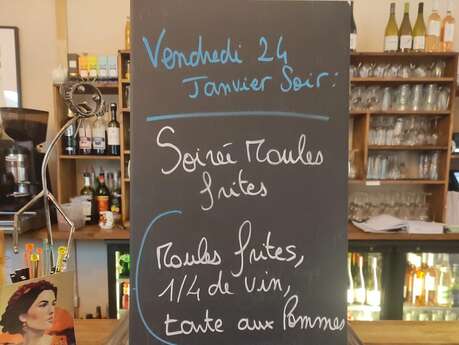 Vendredi 24
Janvier Soir :
Soirée Moules
frites
Moules frites,
1/4 de vin,
tarte aux Pommes